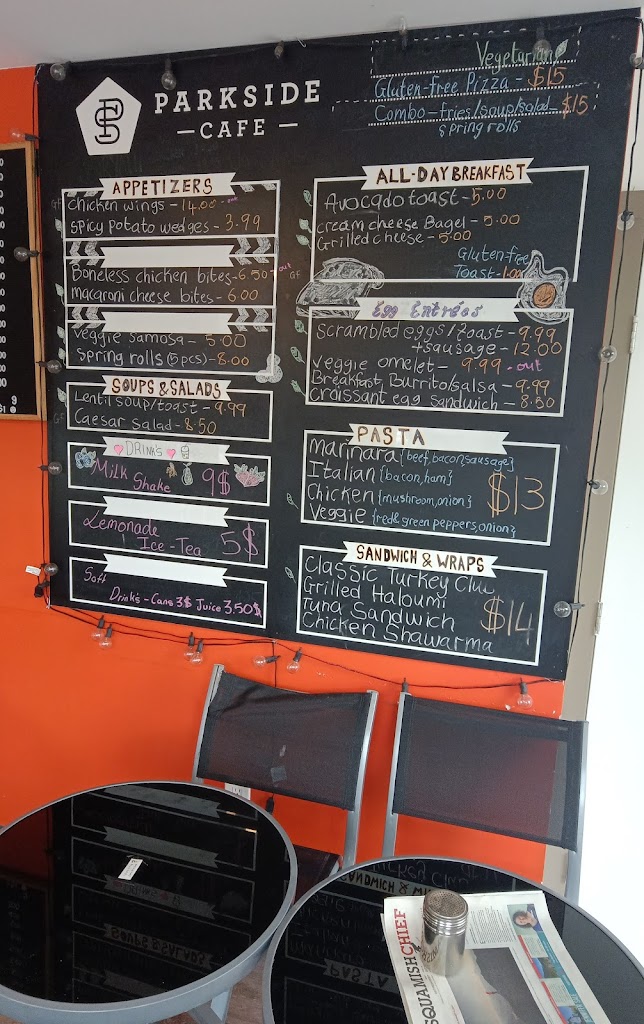 PARKSIDE
— CAFE —
Vegetarian
Gluten-free Pizza - $15
Combo-fries/soup/salad - $15
spring rolls
APPETIZERS
GF chicken wings - 14.00 - out
spicy potato wedges - 3.99
Boneless chicken bites - 6.50 - out GF
macaroni cheese bites - 6.00
veggie samosa - 5.00
Spring rolls (5 pcs) - 8.00
SOUPS & SALADS
Lentil soup/toast - 9.99
GF Caesar salad - 8.50
DRINKS
Milk Shake 9$
Lemonade
Ice-Tea 5$
Soft
Drink's - Cans 3$ Juice 3,50$
ALL-DAY BREAKFAST
Avocado toast - 5.00
cream cheese Bagel - 5.00
Grilled cheese - 5.00
Gluten-free
Toast - 1.00
Egg Entrées
scrambled eggs/toast - 9.99
+sausage - 12.00
veggie omelet - 9.99 - out
Breakfast Burrito/salsa - 9.99
croissant egg sandwich - 8.50
PASTA
Marinara {beef, bacon, sausage}
Italian {bacon, ham}
Chicken {mushroom, onion}
Veggie {red & green peppers, onion}
$13
SANDWICH & WRAPS
Classic Turkey Club
Grilled Haloumi
Tuna Sandwich
Chicken Shawarma
$14
SQUAMISH CHIEF